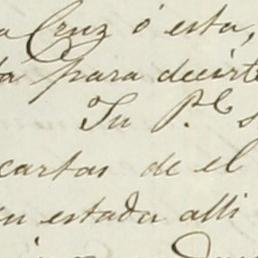 a Cruz ó esta,
tá para decirte
Tu P.l s
cartas de el
in estada alli